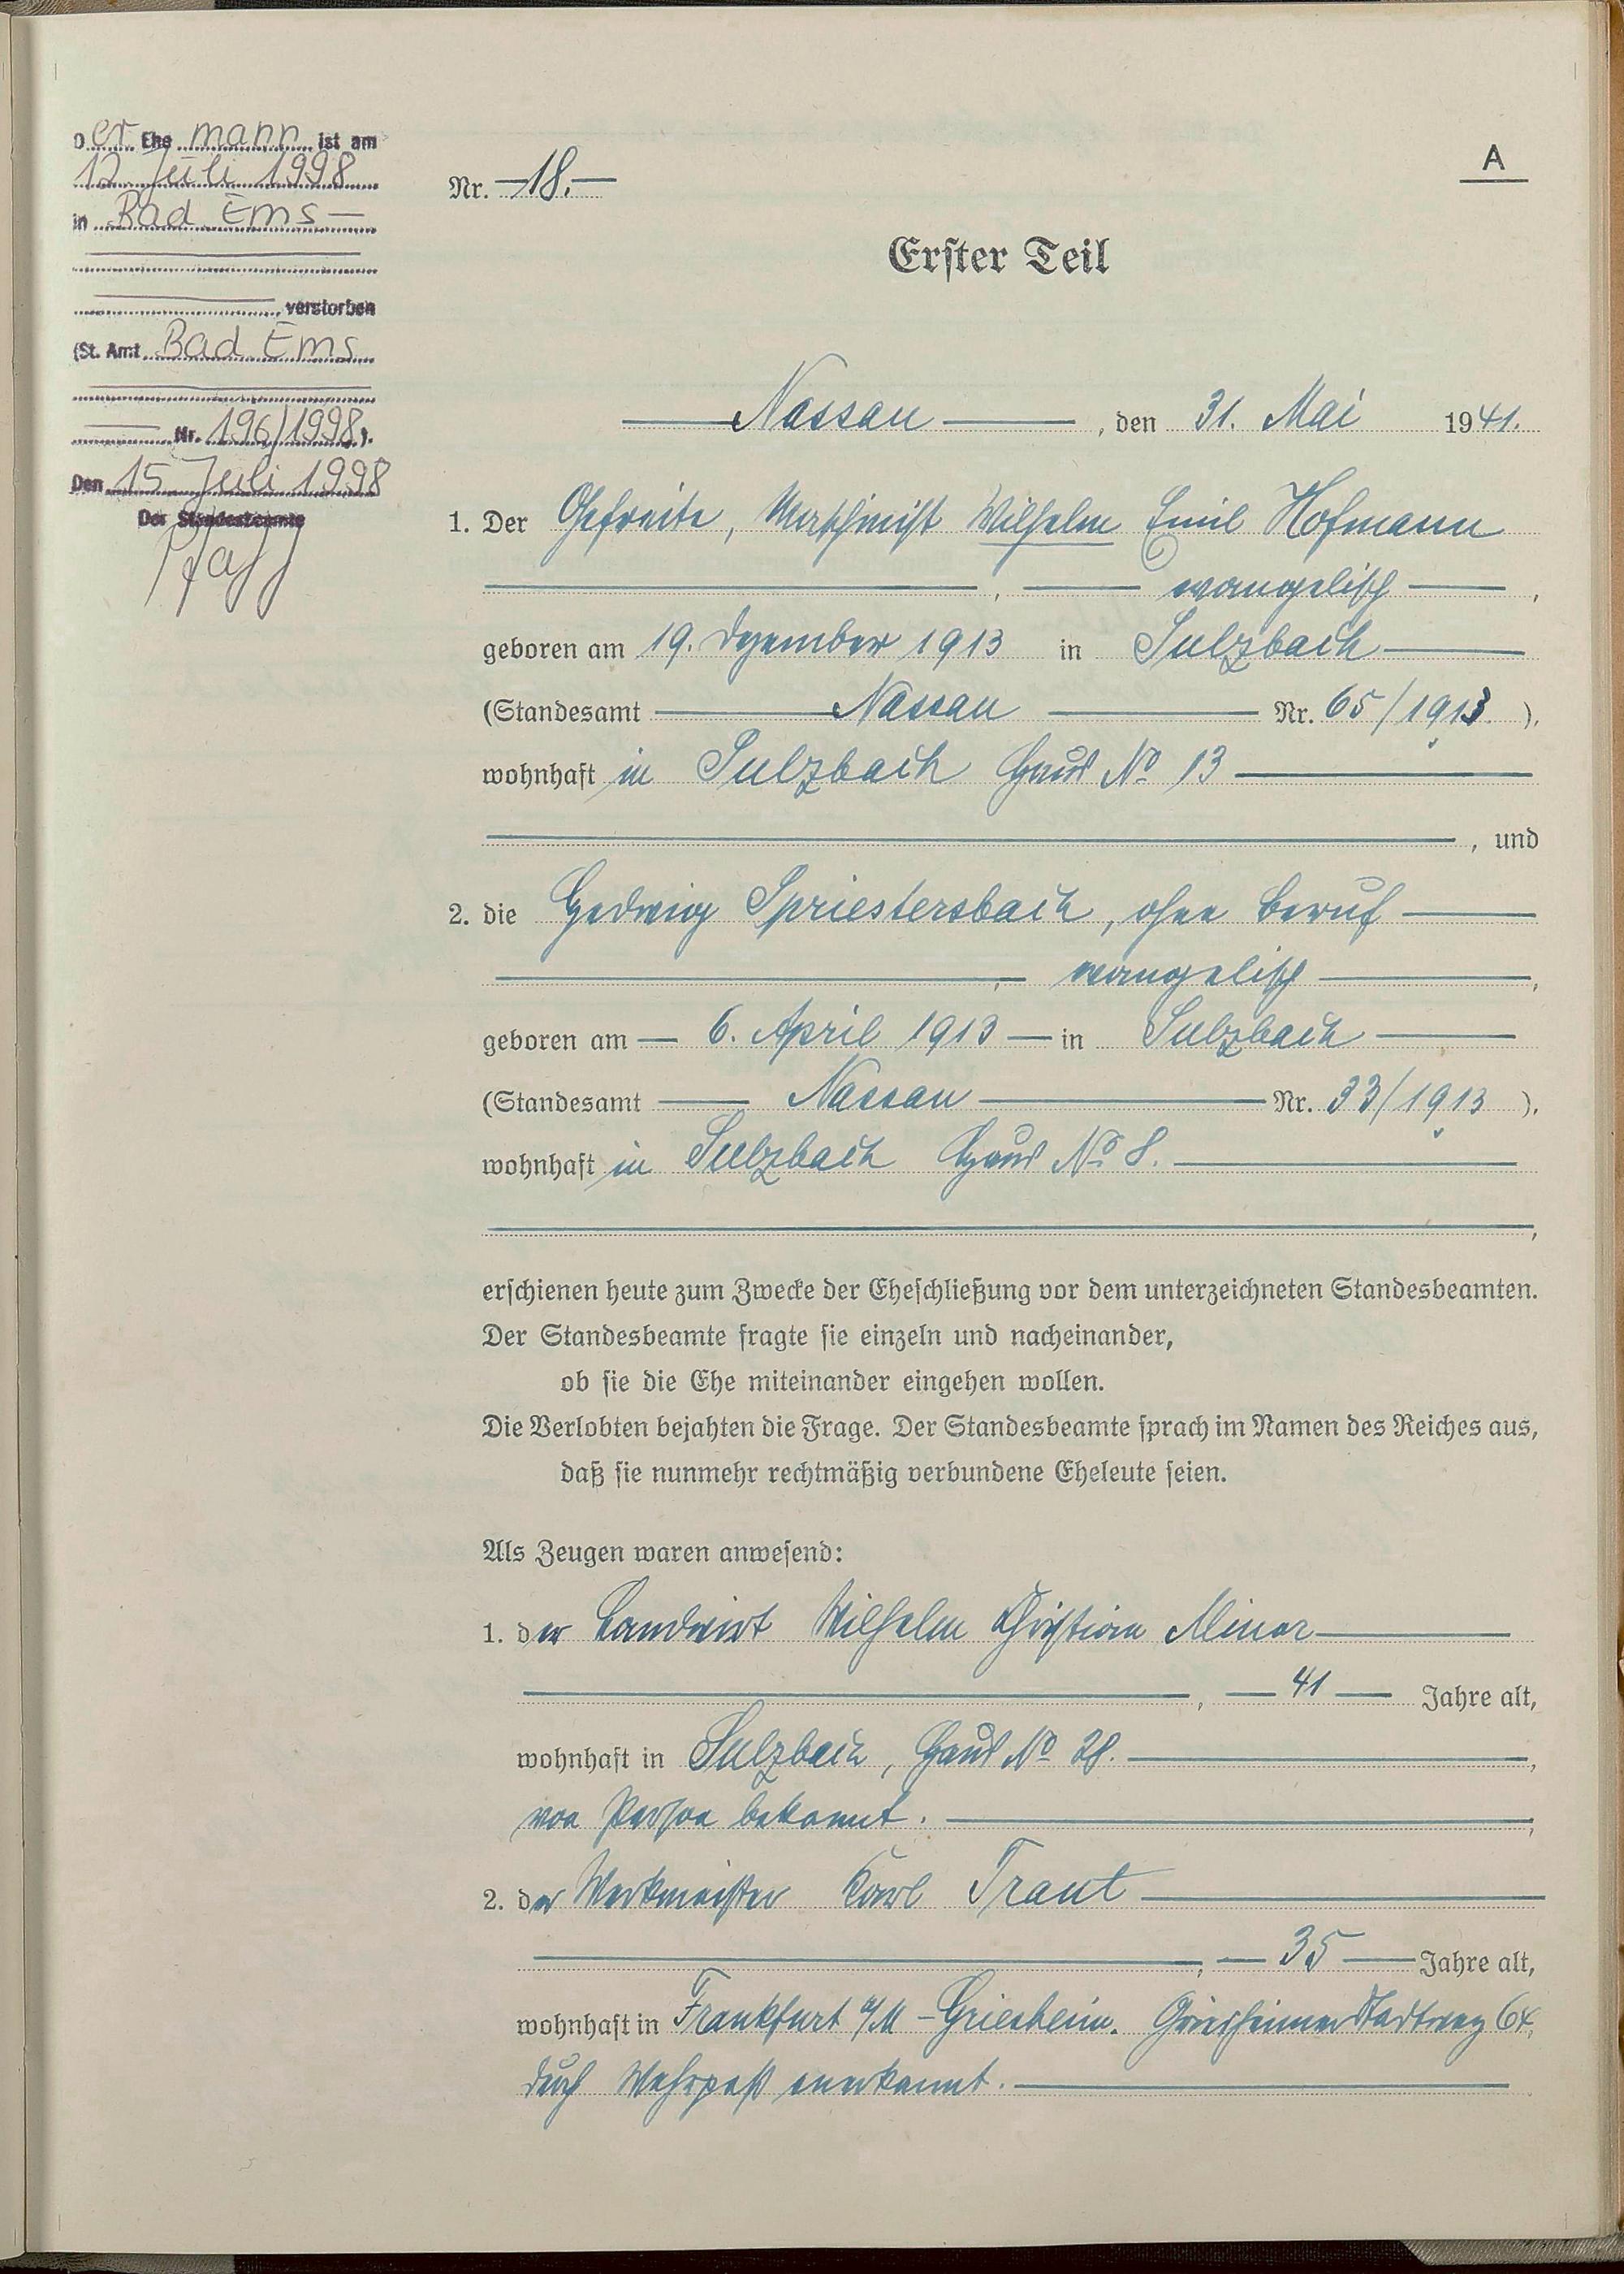 Der Ehemann ist am
12. Juli 1998
in Bad Ems —
verstorben
(St. Amt Bad Ems
Nr. 196/1998).
Den 15. Juli 1998
Der Standesbeamte
A
Nr. 18.
Erster Teil
Nassau, den 31. Mai 1941.
1. Der Gefreite, Maschinist Wilhelm Emil Hofmann
, evangelisch,
geboren am 19. Dezember 1913 in Sulzbach
(Standesamt Nassau Nr. 65/1913),
wohnhaft in Sulzbach Haus No 13
, und
2. die Hedwig Spriestersbach, ohne Beruf
, evangelisch,
geboren am 6. April 1913 in Sulzbach
(Standesamt Nassau Nr. 33/1913),
wohnhaft in Sulzbach Haus No 8.
,
erschienen heute zum Zwecke der Eheschließung vor dem unterzeichneten Standesbeamten.
Der Standesbeamte fragte sie einzeln und nacheinander,
ob sie die Ehe miteinander eingehen wollen.
Die Verlobten bejahten die Frage. Der Standesbeamte sprach im Namen des Reiches aus,
daß sie nunmehr rechtmäßig verbundene Eheleute seien.
Als Zeugen waren anwesend:
1. der Landwirt Wilhelm Christian Minor
, 41 Jahre alt,
wohnhaft in Sulzbach, Haus No 28.,
von Person bekannt.,
2. der Werkmeister Karl Traut
, 35 Jahre alt,
wohnhaft in Frankfurt a/M - Griesheim. Griesheimer Stadtweg 64,
durch Wehrpaß anerkannt.